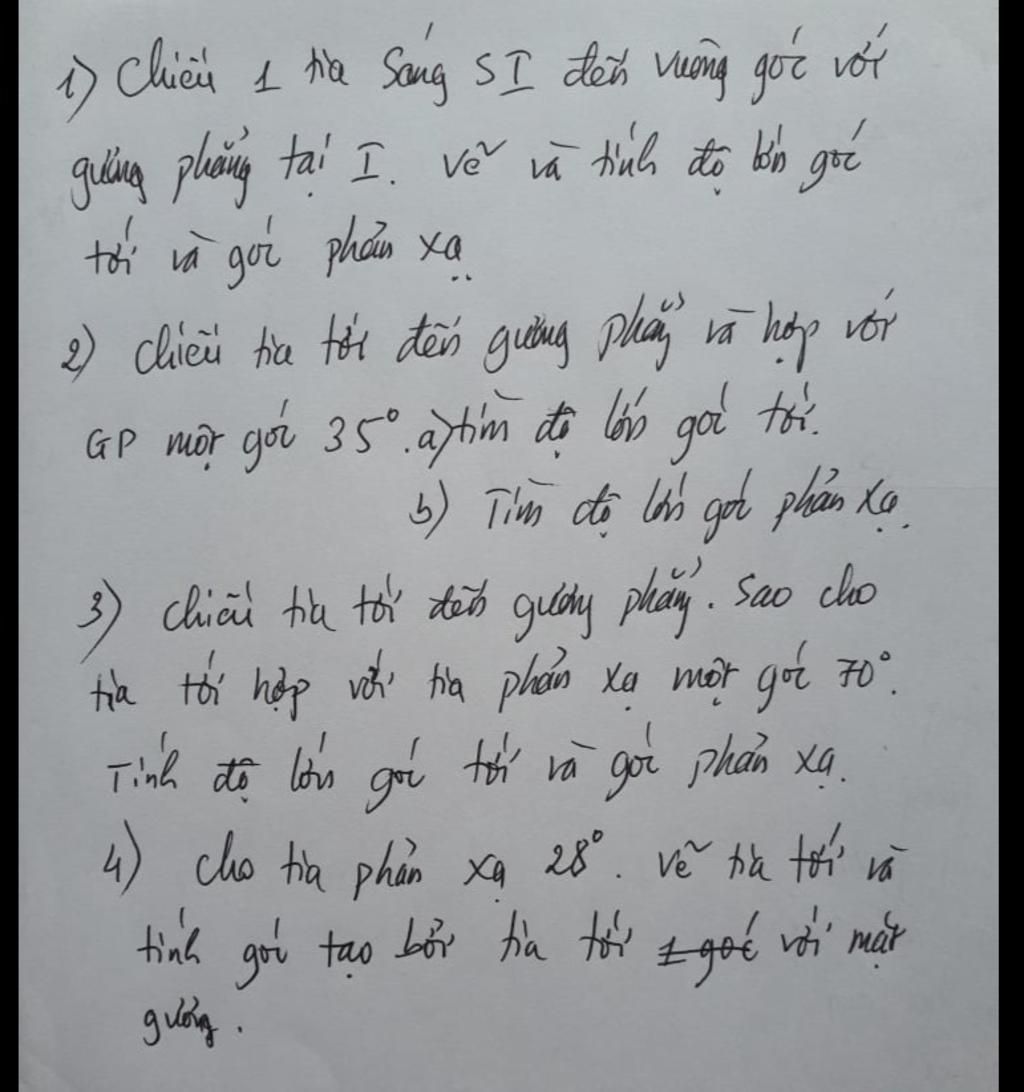 1) Chiếu 1 tia sáng SI đến vuông góc với
gương phẳng tại I. Vẽ và tính độ lớn góc
tới và góc phản xạ.
2) Chiếu tia tới đến gương phẳng và hợp với
GP một góc 35°. a) tìm độ lớn góc tới.
b) Tìm độ lớn góc phản xạ.
3) Chiếu tia tới đến gương phẳng. Sao cho
tia tới hợp với tia phản xạ một góc 70°.
Tính độ lớn góc tới và góc phản xạ.
4) Cho tia phản xạ 28°. Vẽ tia tới và
tính góc tạo bởi tia tới 1 góc với mặt
gương.